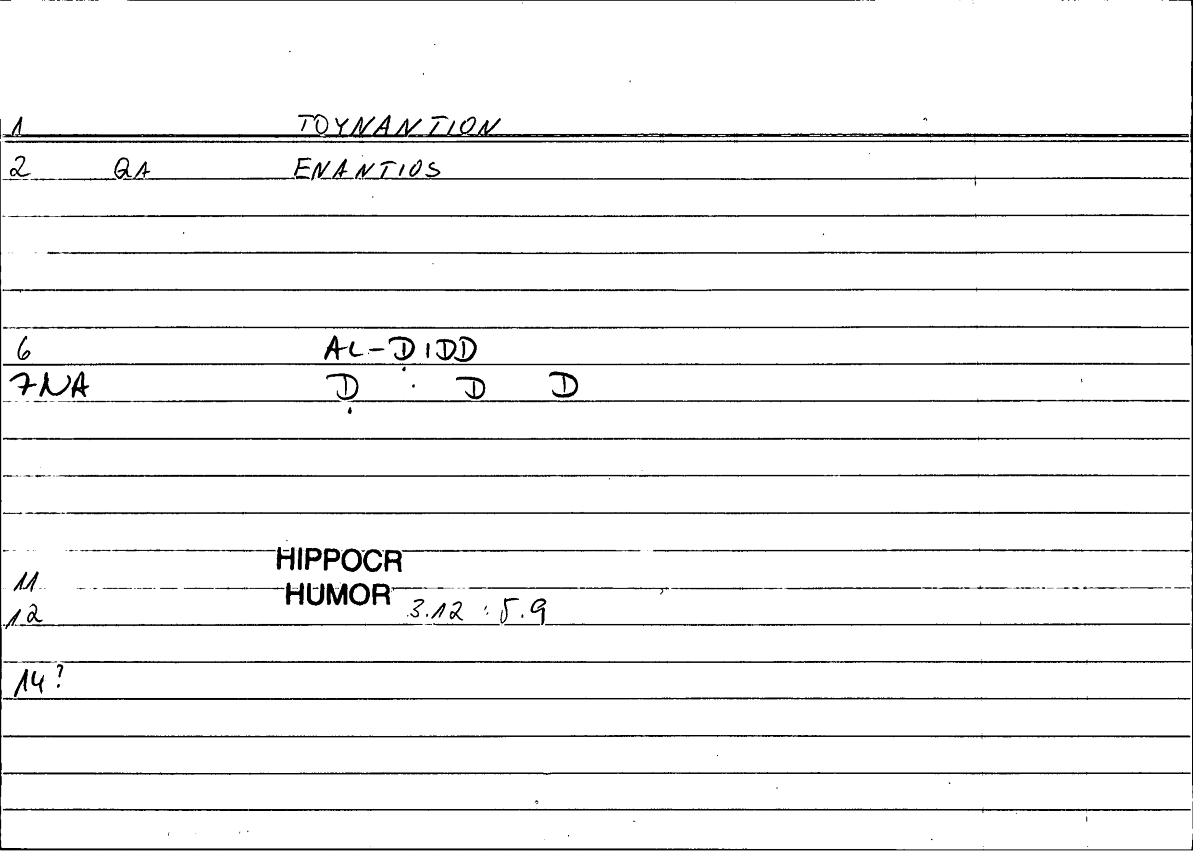 1 TOYNANTION
2 QA ENANTIOS
6 AL-ḌIDD
7NA Ḍ D D
HIPPOCR
11 HUMOR
12 3.12 : 5.9
14?